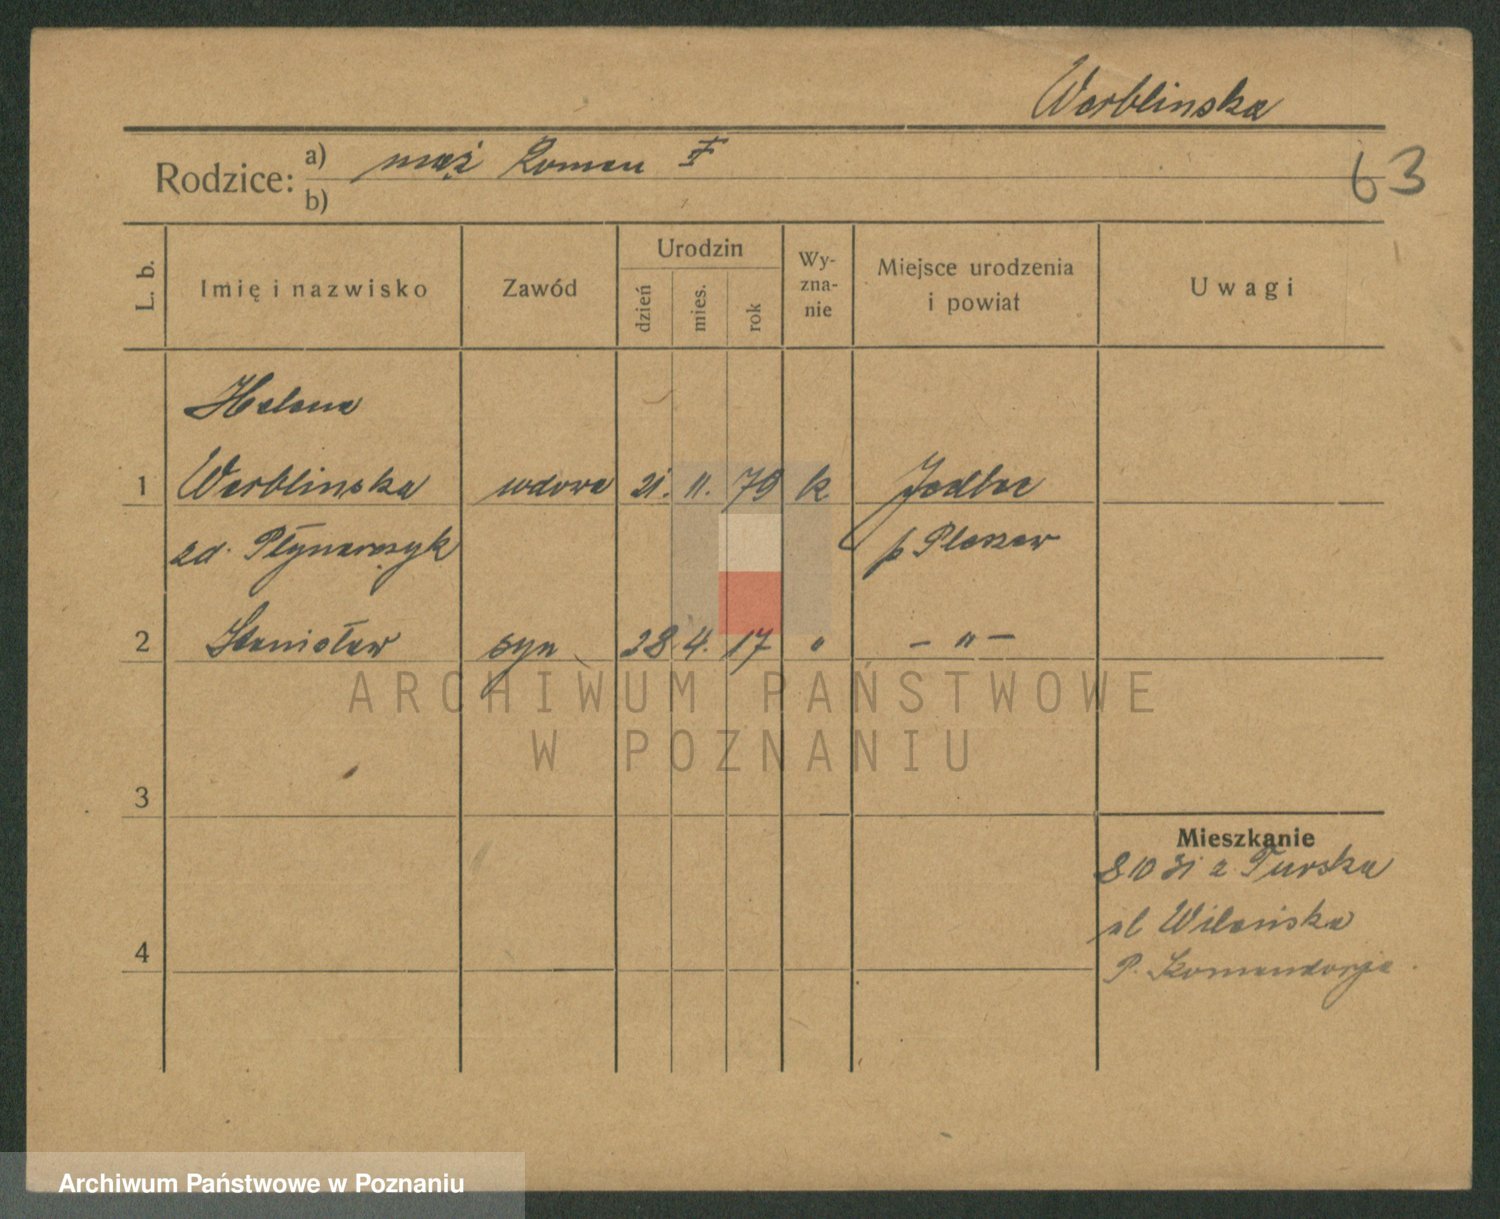 Werblinska
Rodzice: a) mąż Roman
b)
63
L. b. Imię i nazwisko Zawód Urodzin dzień mies. rok Wy-zna-nie Miejsce urodzenia i powiat Uwagi
Helena
1 Werblinska wdowa 21. 11. 79 k Jedlec
zd. Płynarczyk p Pleszew
2 Stanisław syn 28 4. 17 " - " -
ARCHIWUM PAŃSTWOWE
W POZNANIU
3
Mieszkanie
8 10 31 z Turska
ul Wileńska
4
P. Komandorja
Archiwum Państwowe w Poznaniu